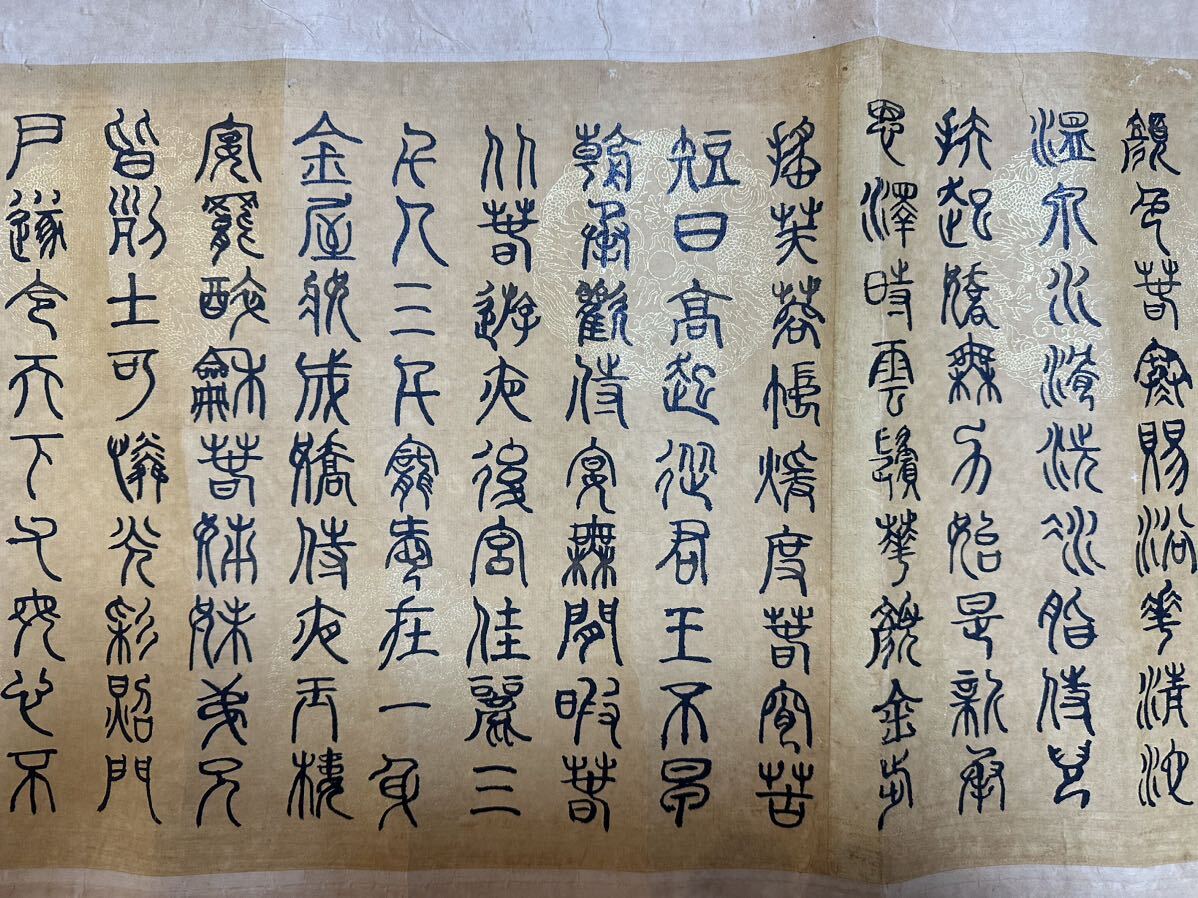 顏色春寒賜浴華清池
溫泉水滑洗凝脂侍兒
扶起嬌無力始是新承
恩澤時雲鬢華顏金步
搖芙蓉帳暖度春宵苦
短日高起從君王不早
朝承歡侍宴無閒暇春
從春遊夜後宮佳麗三
千人三千寵愛在一身
金屋妝成嬌侍夜玉樓
宴罷醉和春姊妹弟兄
皆列土可憐光彩照門
戶遂令天下父母心不